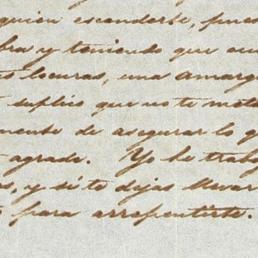 quien esconderte, pues
bra y teniendo que
locuras, una amarg
suplis que no te mole
mente de asegurar lo q
agrade. Yo he trab
s, y si te dejas llevar
para arrepentirte.